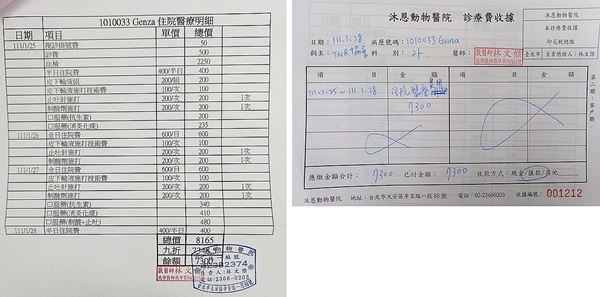 1010033 Genza 住院醫療明細
日期 項目 單價 總價
111/1/25 複診掛號費 50
診費 500
血檢 2250
半日住院費 400/半日 400
皮下輸液組 200/組 200
皮下輸液施打技術費 100/次 100
止吐針施打 200/次 200 1次
制酸劑施打 200/次 200 1次
口服藥(抗生素) 200
口服藥(消炎化痰) 235
111/1/26 全日住院費 600/日 600
皮下輸液施打技術費 100/次 100
止吐針施打 200/次 200 1次
制酸劑施打 200/次 200 1次
111/1/27 全日住院費 600/日 600
皮下輸液施打技術費 100/次 100
止吐針施打 200/次 200 1次
制酸劑施打 200/次 200 1次
口服藥(抗生素) 340
口服藥(消炎化痰) 410
口服藥(制酸+止吐) 480
111/1/28 半日住院費 400/半日 400
總價 8165
九折
餘額 7300
獸醫師林文傑
電話:2366-0203
沐恩動物醫院 診療費收據
日期: 111.1.28 病歷號碼: 1010033 Genza
科別: 醫師: 獸醫師林文傑
沐恩動物醫院
本診療費收據
印花稅總繳
臺北市 負責總繳人:林文傑
項目 金額 項目 金額
111.1.25~111.1.28 住院醫療費用
7300
第二聯:客戶聯
應繳金額合計: 7300 已付金額: 7300 收款方式:現金/匯款/其他
沐恩動物醫院 地址:台北市大安區辛亥路一段86號 電話:02-23660203 收據編號: 001212